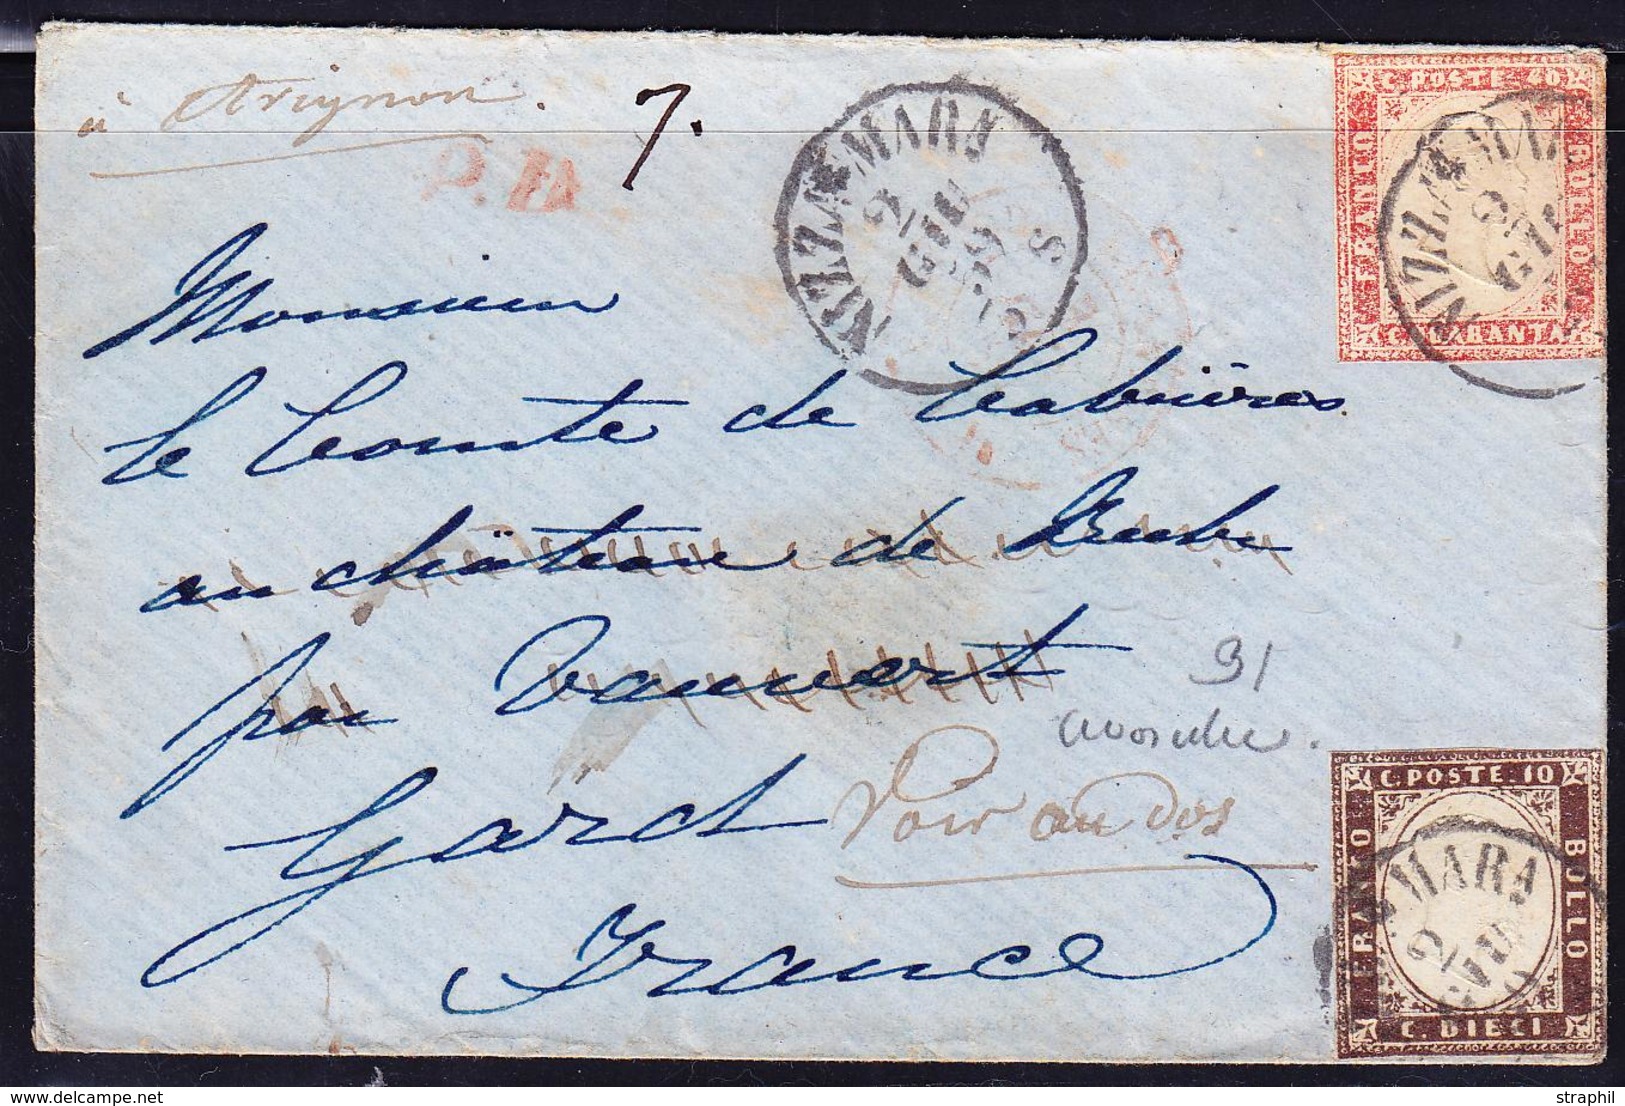 à Avignon.
7.
P.D.
NIZZA MARA
2 GIU 59
S
C. POSTE 40
FRANCO
BOLLO
C. QUARANTA
NIZZA MARA
2 GIU
Monsieur
le Comte de Cabrières
au château de
par Vauvert
91
Gard Voir au dos
France
C. POSTE 10
FRANCO
BOLLO
C. DIECI
MARA
2 GIU
© straphil - delcampe.net